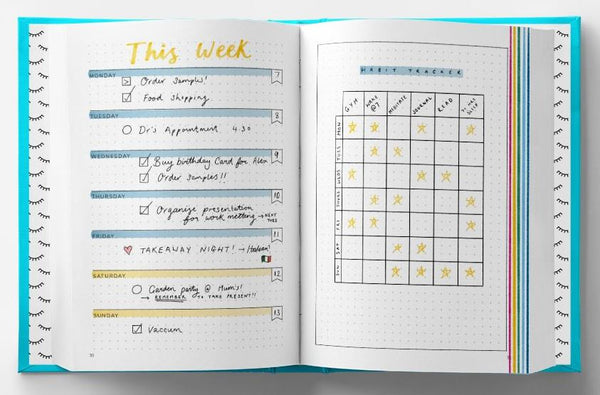 This Week
MONDAY 7
Order Samples!
Food Shopping
TUESDAY 8
Dr's Appointment 4 30
WEDNESDAY 9
Buy birthday Card for Alex
Order Samples!!
THURSDAY 10
Organise presentation
for work meeting → NEXT
TUES
FRIDAY 11
TAKEAWAY NIGHT! → Italian!
SATURDAY 12
Garden party @ Mum's!
→ REMEMBER TO TAKE PRESENT!!
SUNDAY 13
Vaccum
HABIT TRACKER
GYM
WAKE
@7
MEDITATE
JOURNAL
READ
SLEEP
MON
TUES
WEDS
THURS
FRI
SAT
SUN